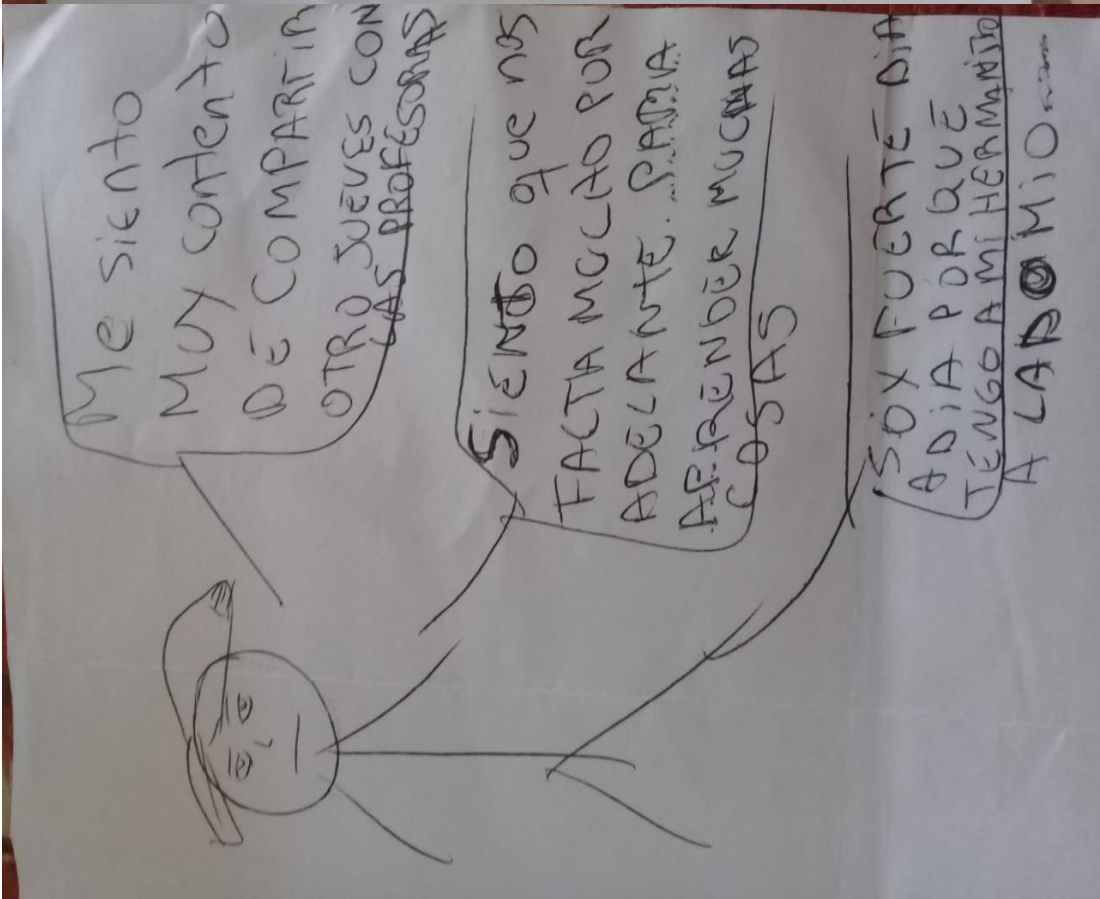 Me siento
Muy contento
DE COMPARTIR
OTRO JUEVES CON
LAS PROFESORAS
SiENTO que nos
FALTA MUCHO POR
ADELANTE PARA
APRENDER MUCHAS
COSAS
SOY FUERTE DiA
A DiA PORQUE
TENGO A MI HERMANITO
A LADO MiO